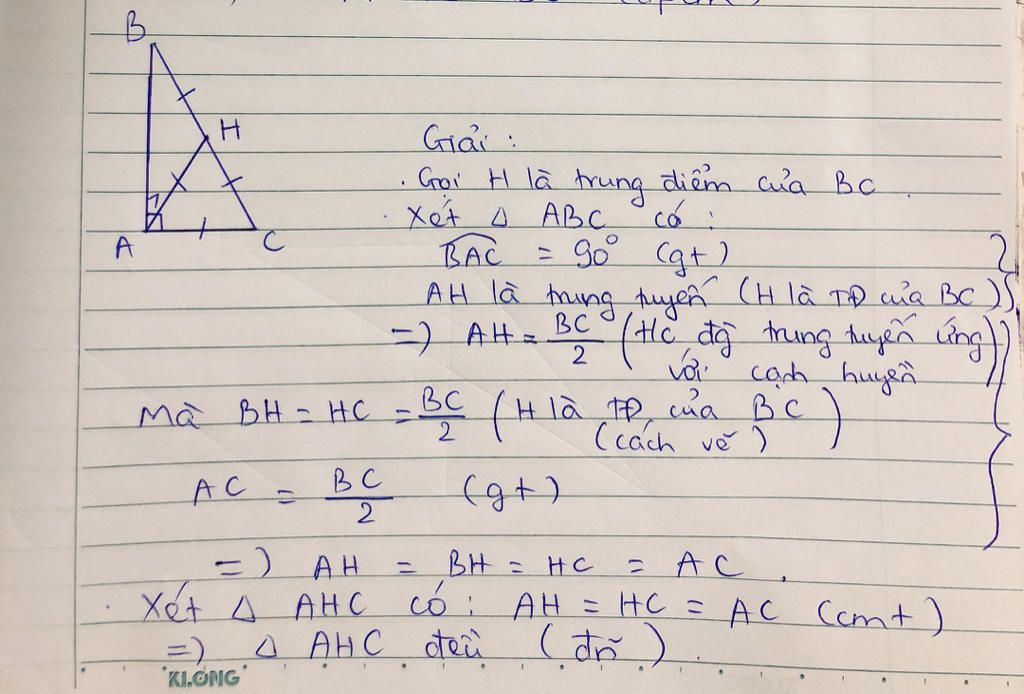 B
H
A
C
Giải :
. Gọi H là trung điểm của BC .
. Xét Δ ABC có :
BAC = 90° (gt)
AH là trung tuyến (H là TĐ của BC)
=) AH = BC/2 (HC đg trung tuyến ứng
với cạnh huyền)
Mà BH = HC = BC/2 (H là TĐ của BC)
(cách vẽ)
AC = BC/2 (gt)
=) AH = BH = HC = AC .
. Xét Δ AHC có : AH = HC = AC (cmt)
=) Δ AHC đều (đn) .
KLONG